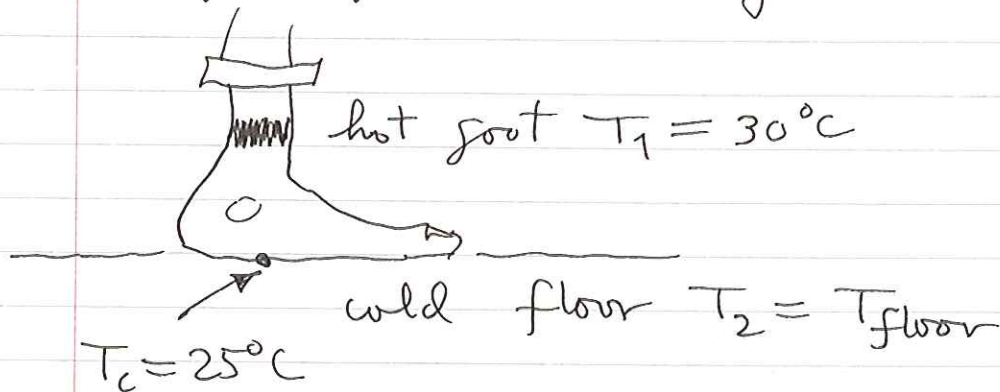 hot foot T₁ = 30°C
cold floor T₂ = T_floor
T_c = 25°C